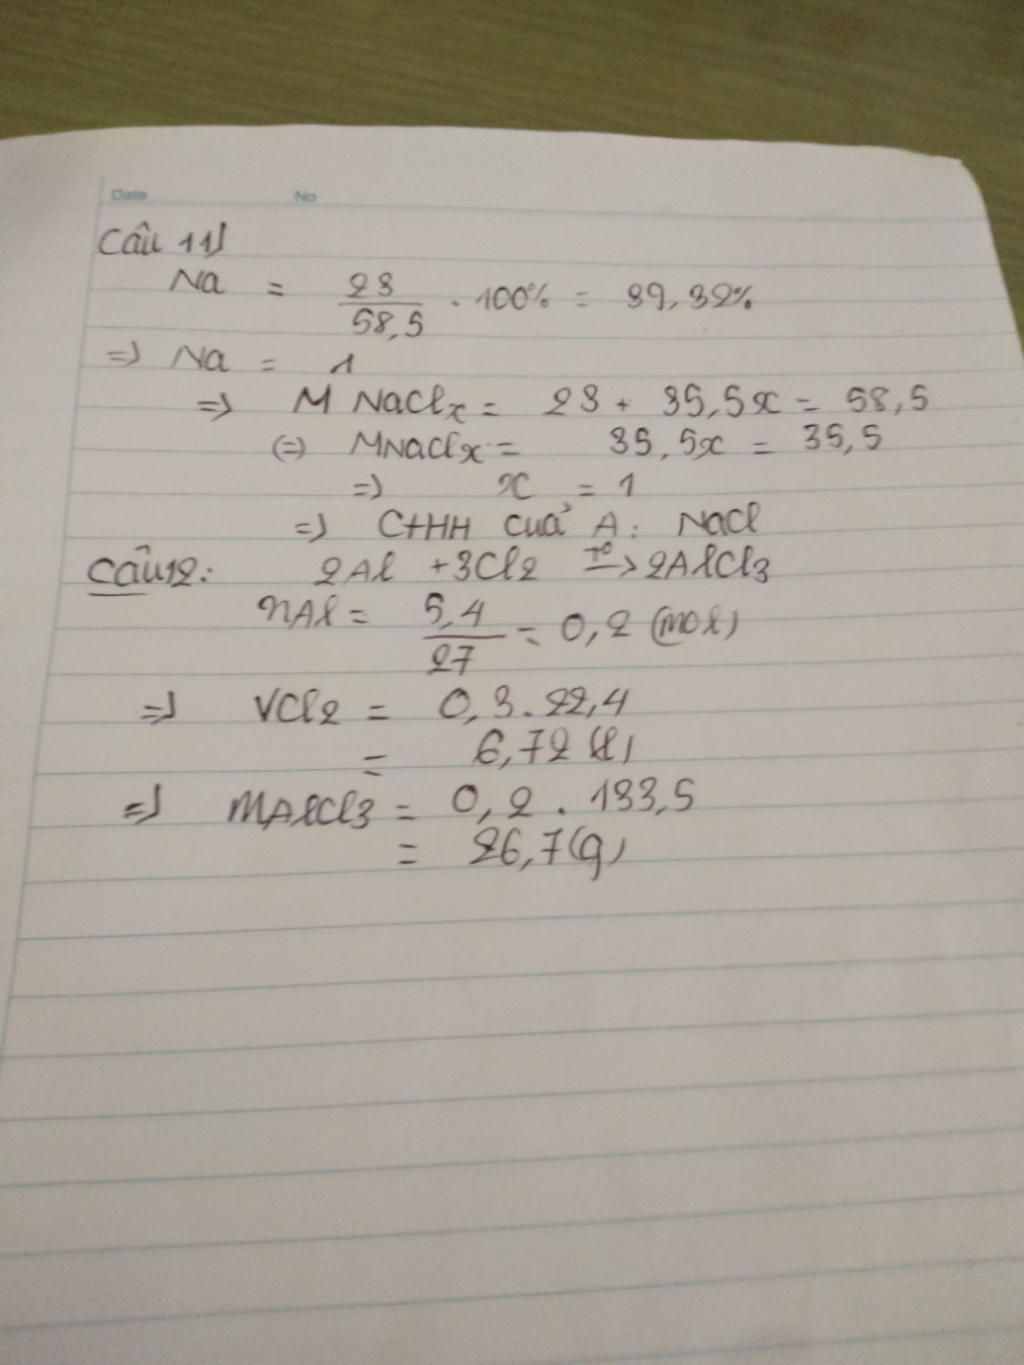 Date No
Câu 11)
Na = 23/58,5 . 100% = 39,32%
=> Na = 1
=> M NaClx = 23 + 35,5x = 58,5
(=) MNaClx = 35,5x = 35,5
=> x = 1
=> CTHH của A: NaCl
Câu12: 2Al + 3Cl2 t°-> 2AlCl3
nAl = 5,4/27 = 0,2 (mol)
=> VCl2 = 0,3.22,4
= 6,72 (l)
=> mAlCl3 = 0,2 . 133,5
= 26,7(g)